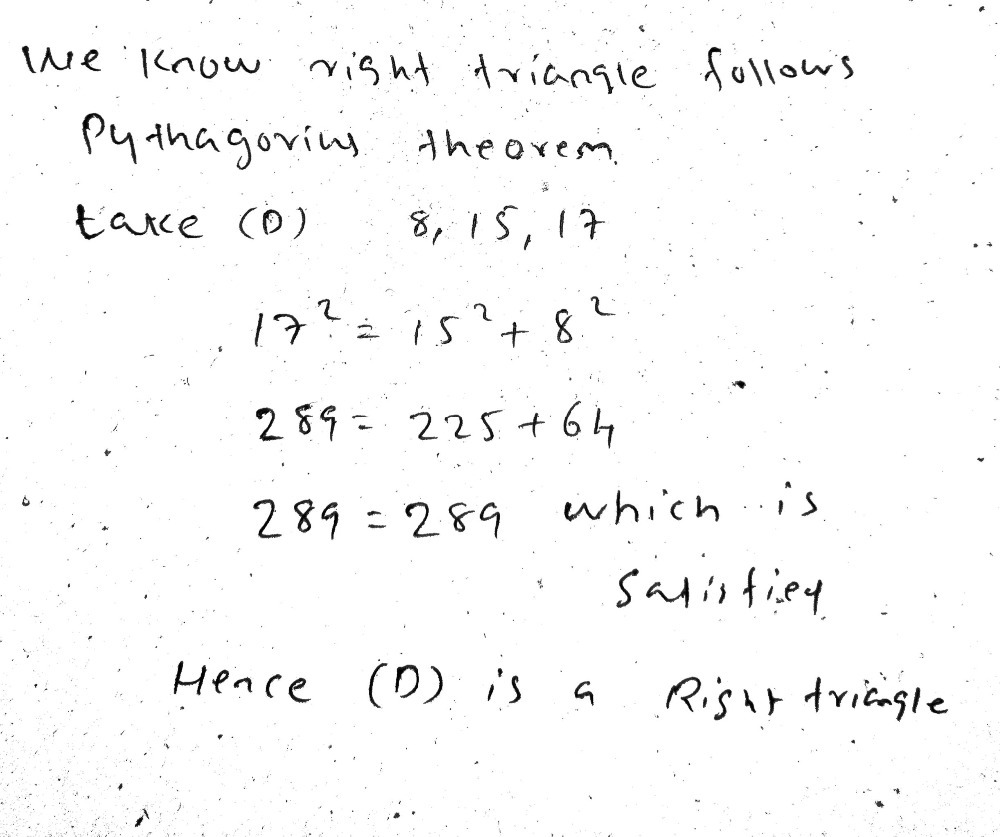 We know right triangle follows
Pythagorius theorem.
take (D) 8, 15, 17
17² = 15² + 8²
289 = 225 + 64
289 = 289 which is
satisfied
Hence (D) is a Right triangle